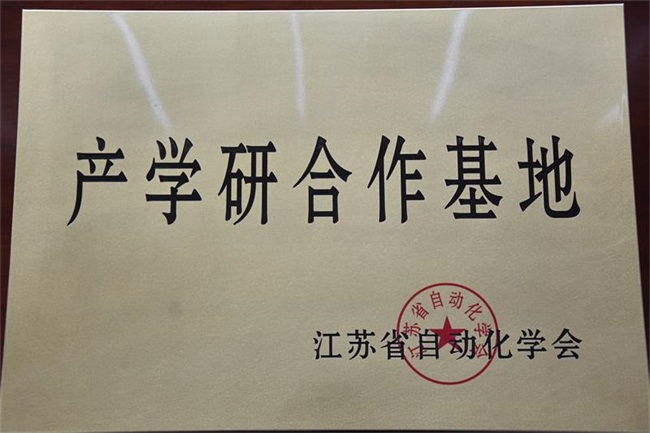 产学研合作基地
江苏省自动化学会
江苏省自动化学会